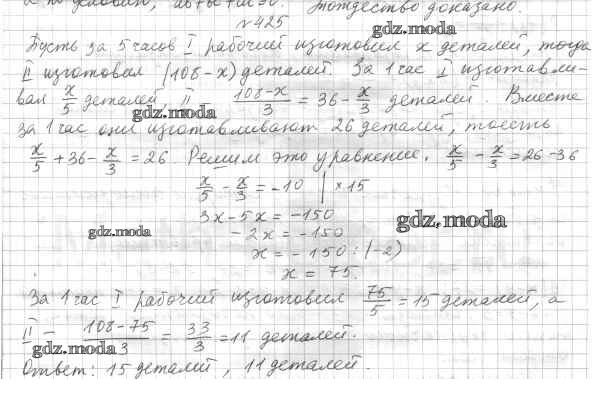 ab+bc+ac=0. Тождество доказано.
gdz.moda
№425
Пусть за 5 часов I рабочий изготовил x деталей, тогда
II изготовил (108-x) деталей. За 1 час I изготавли-
вал x/5 деталей, II (108-x)/3 = 36 - x/3 деталей. Вместе
gdz.moda
за 1 час они изготавливают 26 деталей, то есть
x/5 + 36 - x/3 = 26. Решим это уравнение. x/5 - x/3 = 26 - 36
x/5 - x/3 = -10 | ×15
3x - 5x = -150
gdz.moda
-2x = -150
gdz.moda
x = -150 : (-2)
x = 75.
За 1 час I рабочий изготовил 75/5 = 15 деталей, а
II - (108-75)/3 = 33/3 = 11 деталей.
gdz.moda
Ответ: 15 деталей, 11 деталей.